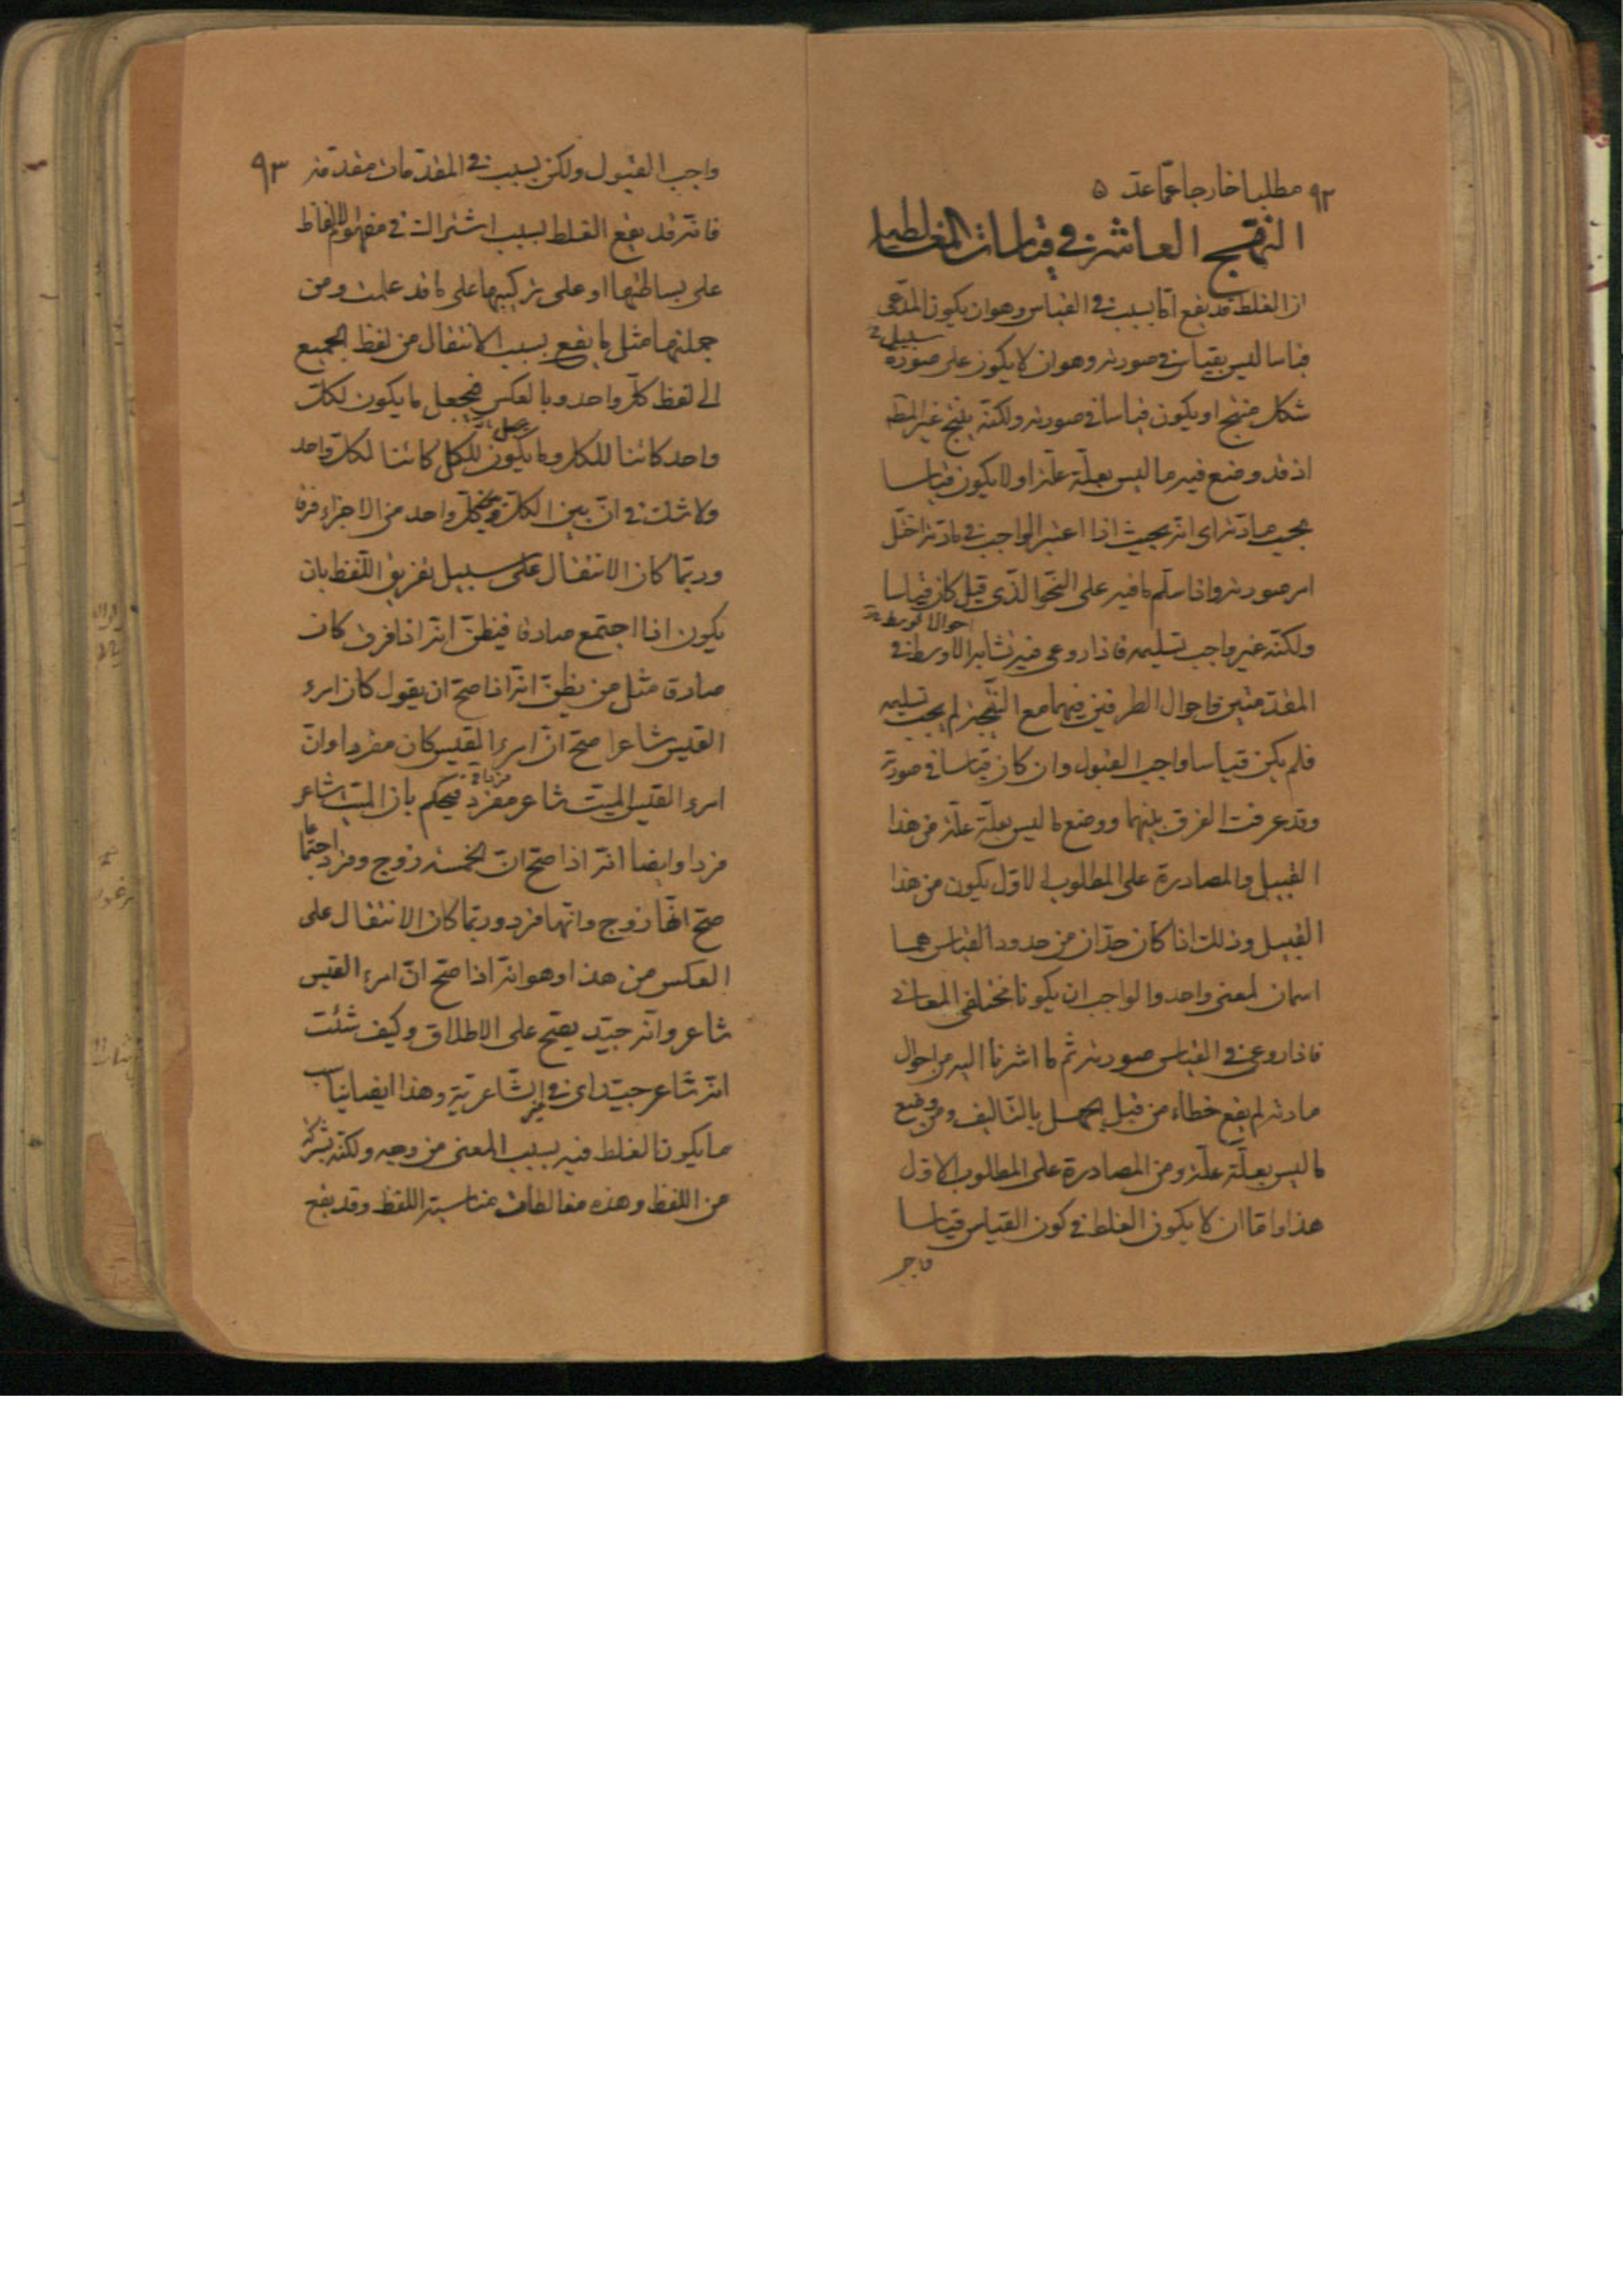 ٩٢
مطلبا خارجا عما عد ۵
النهج العاشر في قياسات المغالطية
ان الغلط قد يقع اما بسبب في القياس وهو ان يكون المدعى
سبيل
قياسا ليس بقياس في صورته وهو ان لا يكون على صورة
شكل منتج او يكون قياسا في صورته ولكنه ينتج غير المط
اذ قد وضع فيه ما ليس بعلة علة او لا يكون قياسا
بحسب مادته اى انه بحيث اذا اعتبر الواجب في مادته اختل
امر صورته واذا سلم ما فيه على النحو الذى قيل كان قياسا
احوال الاوسط
ولكنه غير واجب تسليمه فاذا روعى فيه تشابه الاوسط في
المقدمتين واحوال الطرفين فيهما مع النتيجة لم يجب تسليمه
فلم يكن قياسا واجب القبول وان كان قياسا في صورته
وقد عرفت الفرق بينهما ووضع ما ليس بعلة علة من هذا
القبيل والمصادرة على المطلوب الاول يكون من هذا
القبيل وذلك اذا كان حدان من حدود القياس هما
اسمان لمعنى واحد والواجب ان يكونا مختلفى المعانى
فاذا روعى في القياس صورته ثم ما اشرنا اليه من احوال
مادته لم يقع خطاء من قبل الجهل بالتاليف ومن وضع
ما ليس بعلة علة ومن المصادرة على المطلوب الاول
هذا واما ان لا يكون الغلط في كون القياس قياسا
واجب
٩٣
واجب القبول ولكن بسبب في المقدمات مقدمة
فانه قد يقع الغلط بسبب اشتراك في مفهوم الالفاظ
على بساطتها او على تركيبها على ما قد علمت ومن
جملتها مثل ما يقع بسبب الانتقال من لفظ الجميع
الى لفظ كل واحد وبالعكس فيجعل ما يكون لكل
واحد كائنا للكل وما يكون للكل كائنا لكل واحد
ولا شك في ان بين الكل وبين كل واحد من الاجزاء فرقا
وربما كان الانتقال على سبيل تفريق اللفظ بان
يكون اذا اجتمع صادقا فيظن انه اذا فرق كان
صادقا مثل من يظن انه اذا صح ان يقول كان امرء
القيس شاعرا صح ان امرء القيس كان مفردا وان
امرء القيس الميت شاعر مفرد فيحكم بان الميت شاعر
فردا وايضا انه اذا صح ان الخمسة زوج وفرد اجتماعا
صح انها زوج وانها فرد وربما كان الانتقال على
العكس من هذا وهو انه اذا صح ان امرء القيس
شاعر وانه جيد يصح على الاطلاق وكيف شئت
انه شاعر جيد اى في الشاعرية وهذا ايضا يناسب
ما يكون الغلط فيه بسبب المعنى من وجه ولكنه بشركة
من اللفظ وهذه مغالطات مناسبة اللفظ وقد يقع